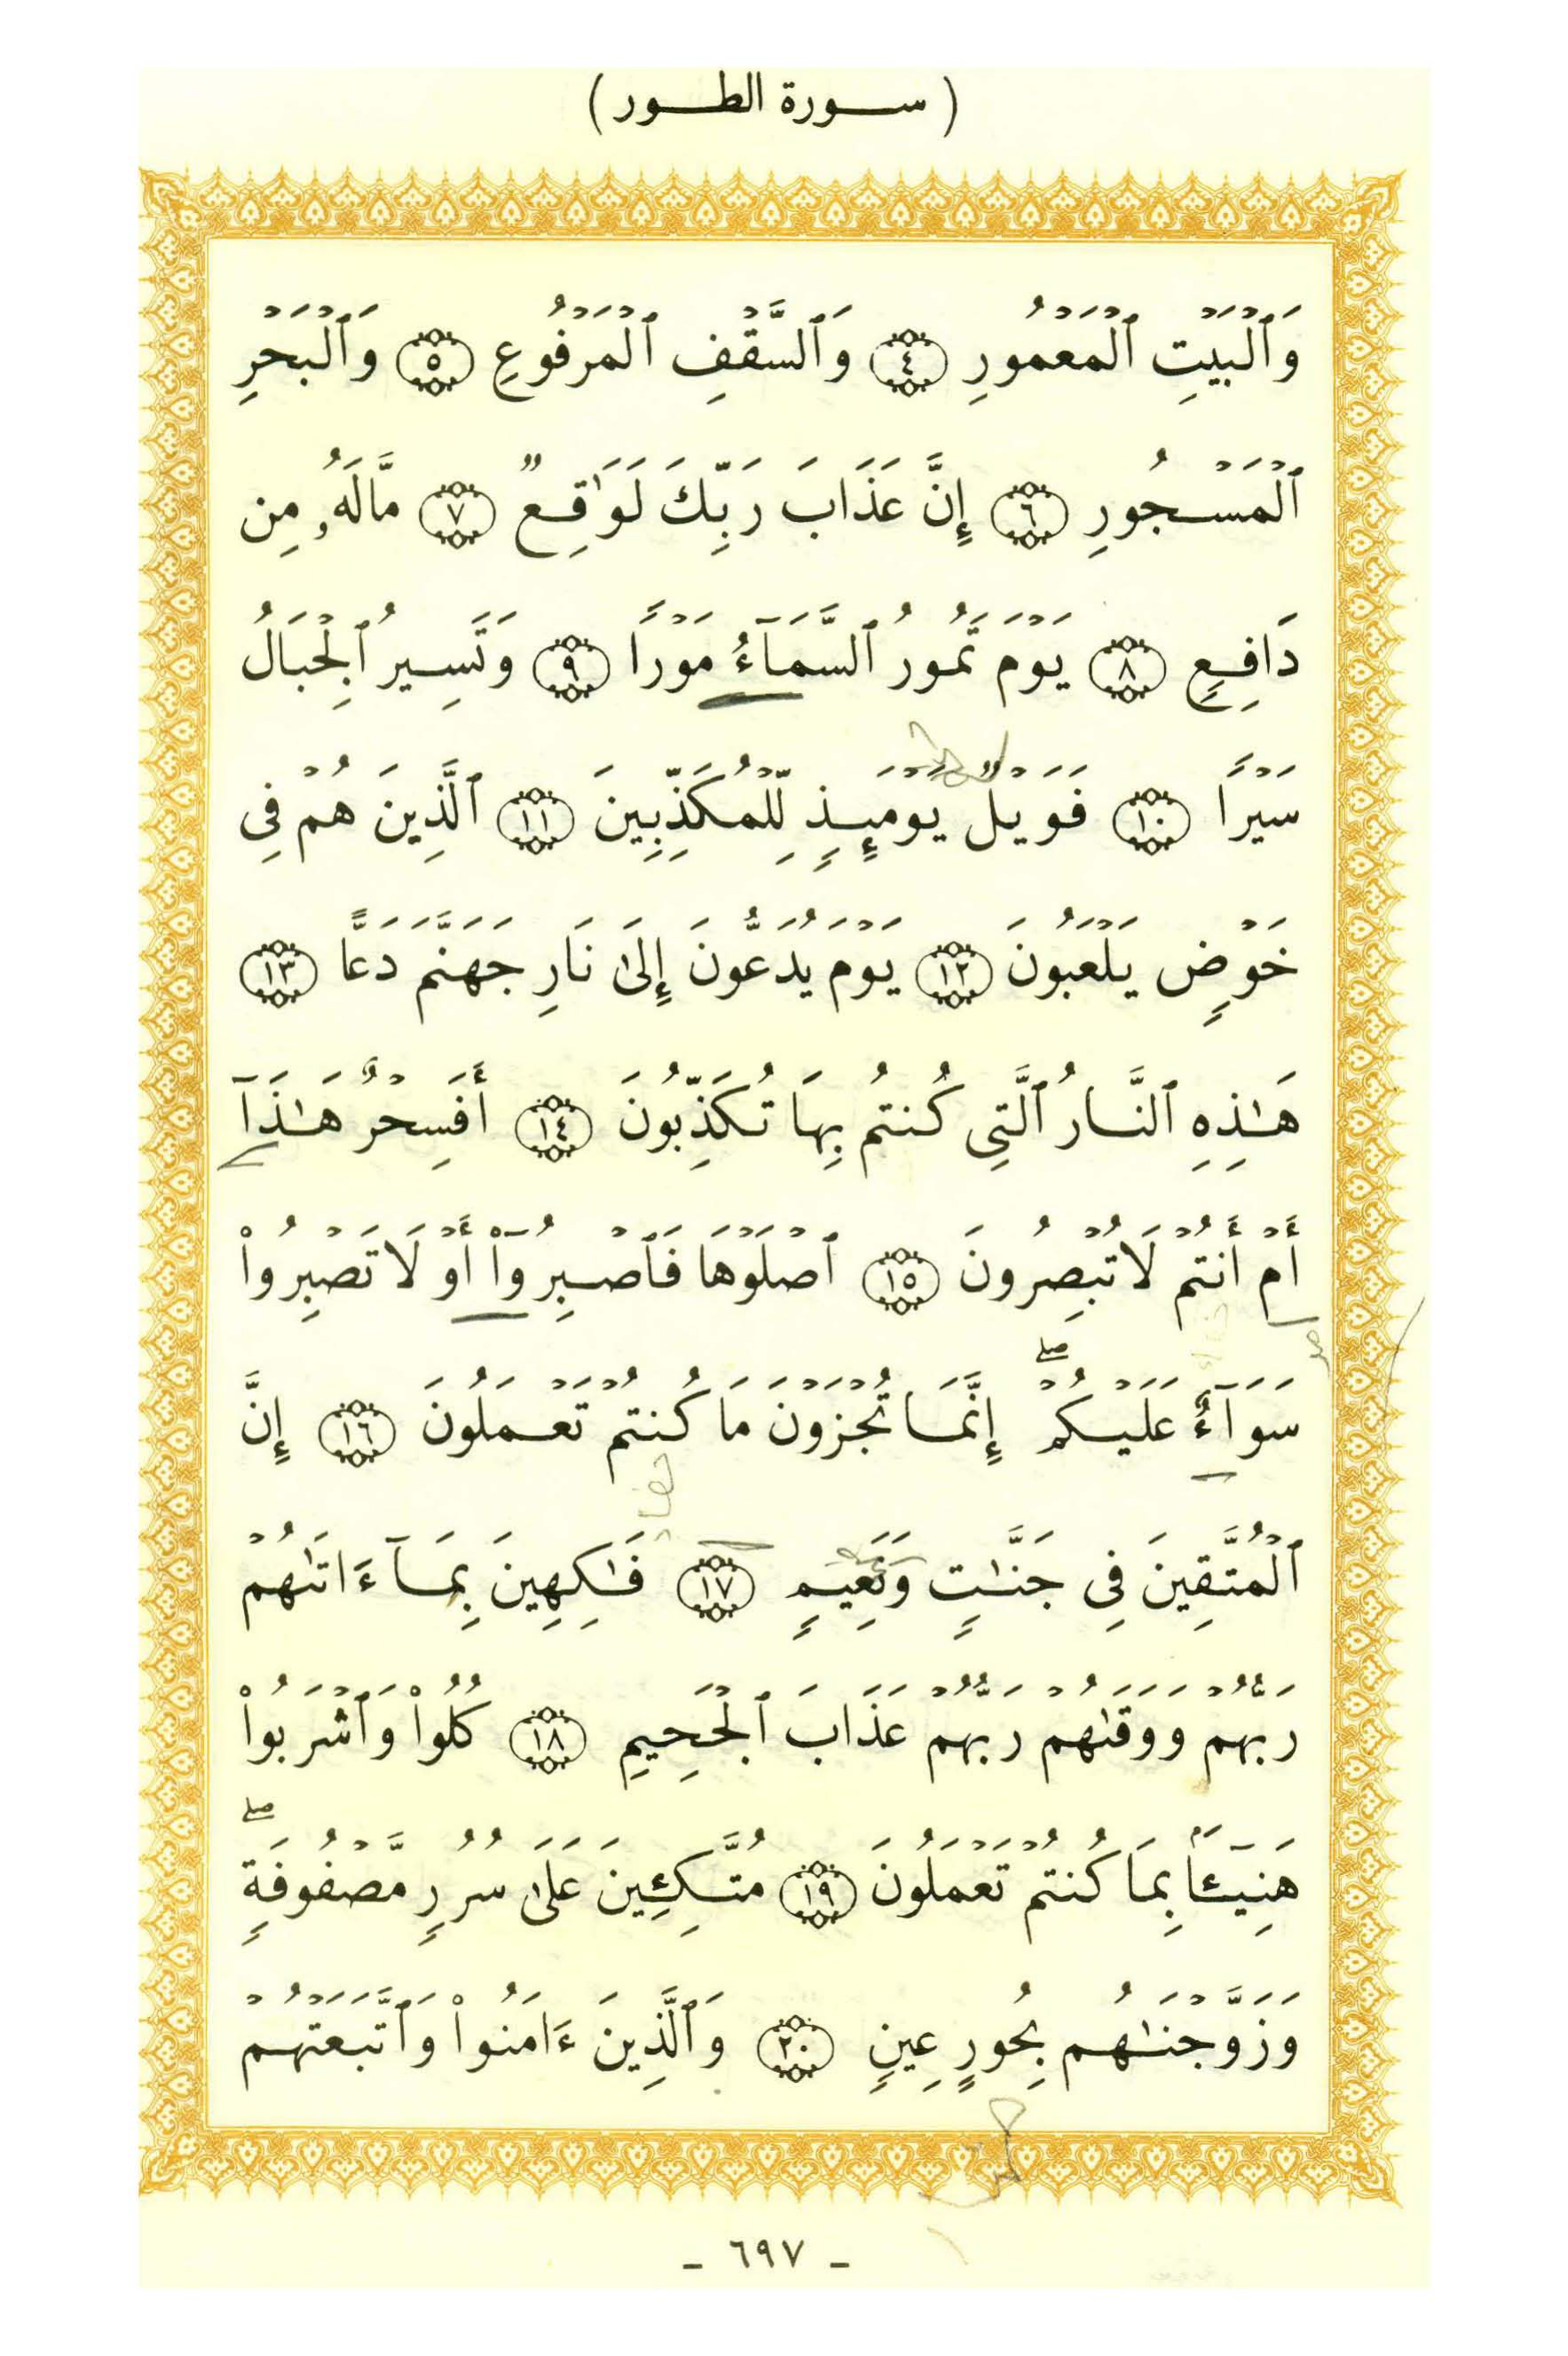 ( سورة الطور )
وَٱلْبَيْتِ ٱلْمَعْمُورِ ﴿٤﴾ وَٱلسَّقْفِ ٱلْمَرْفُوعِ ﴿٥﴾ وَٱلْبَحْرِ
ٱلْمَسْجُورِ ﴿٦﴾ إِنَّ عَذَابَ رَبِّكَ لَوَٰقِعٌ ﴿٧﴾ مَّالَهُۥ مِن
دَافِعٍ ﴿٨﴾ يَوْمَ تَمُورُ ٱلسَّمَآءُ مَوْرًا ﴿٩﴾ وَتَسِيرُ ٱلْجِبَالُ
سَيْرًا ﴿١٠﴾ فَوَيْلٌ يَوْمَئِذٍ لِّلْمُكَذِّبِينَ ﴿١١﴾ ٱلَّذِينَ هُمْ فِى
خَوْضٍ يَلْعَبُونَ ﴿١٢﴾ يَوْمَ يُدَعُّونَ إِلَىٰ نَارِ جَهَنَّمَ دَعًّا ﴿١٣﴾
هَـٰذِهِ ٱلنَّارُ ٱلَّتِى كُنتُم بِهَا تُكَذِّبُونَ ﴿١٤﴾ أَفَسِحْرٌ هَـٰذَآ
أَمْ أَنتُمْ لَا تُبْصِرُونَ ﴿١٥﴾ ٱصْلَوْهَا فَٱصْبِرُوٓا۟ أَوْ لَا تَصْبِرُوا۟
سَوَآءٌ عَلَيْكُمْ ۖ إِنَّمَا تُجْزَوْنَ مَا كُنتُمْ تَعْمَلُونَ ﴿١٦﴾ إِنَّ
ٱلْمُتَّقِينَ فِى جَنَّـٰتٍ وَنَعِيمٍ ﴿١٧﴾ فَـٰكِهِينَ بِمَآ ءَاتَىٰهُمْ
رَبُّهُمْ وَوَقَىٰهُمْ رَبُّهُمْ عَذَابَ ٱلْجَحِيمِ ﴿١٨﴾ كُلُوا۟ وَٱشْرَبُوا۟
هَنِيٓـًٔا بِمَا كُنتُمْ تَعْمَلُونَ ﴿١٩﴾ مُتَّكِـِٔينَ عَلَىٰ سُرُرٍ مَّصْفُوفَةٍ ۖ
وَزَوَّجْنَـٰهُم بِحُورٍ عِينٍ ﴿٢٠﴾ وَٱلَّذِينَ ءَامَنُوا۟ وَٱتَّبَعَتْهُمْ
- ٦٩٧ -